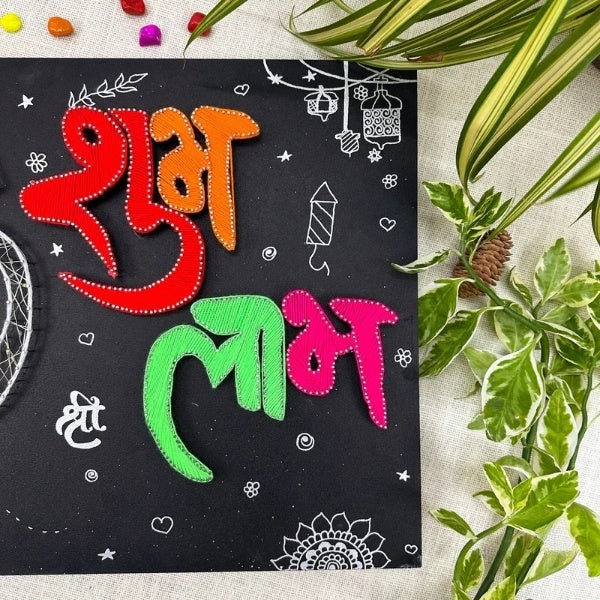 शुभ
लाभ
श्री